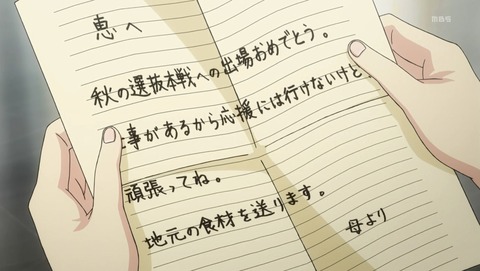 恵へ
秋の選抜本戦への出場おめでとう。
事があるから応援には行けないけど
頑張ってね。
地元の食材を送ります。
母より